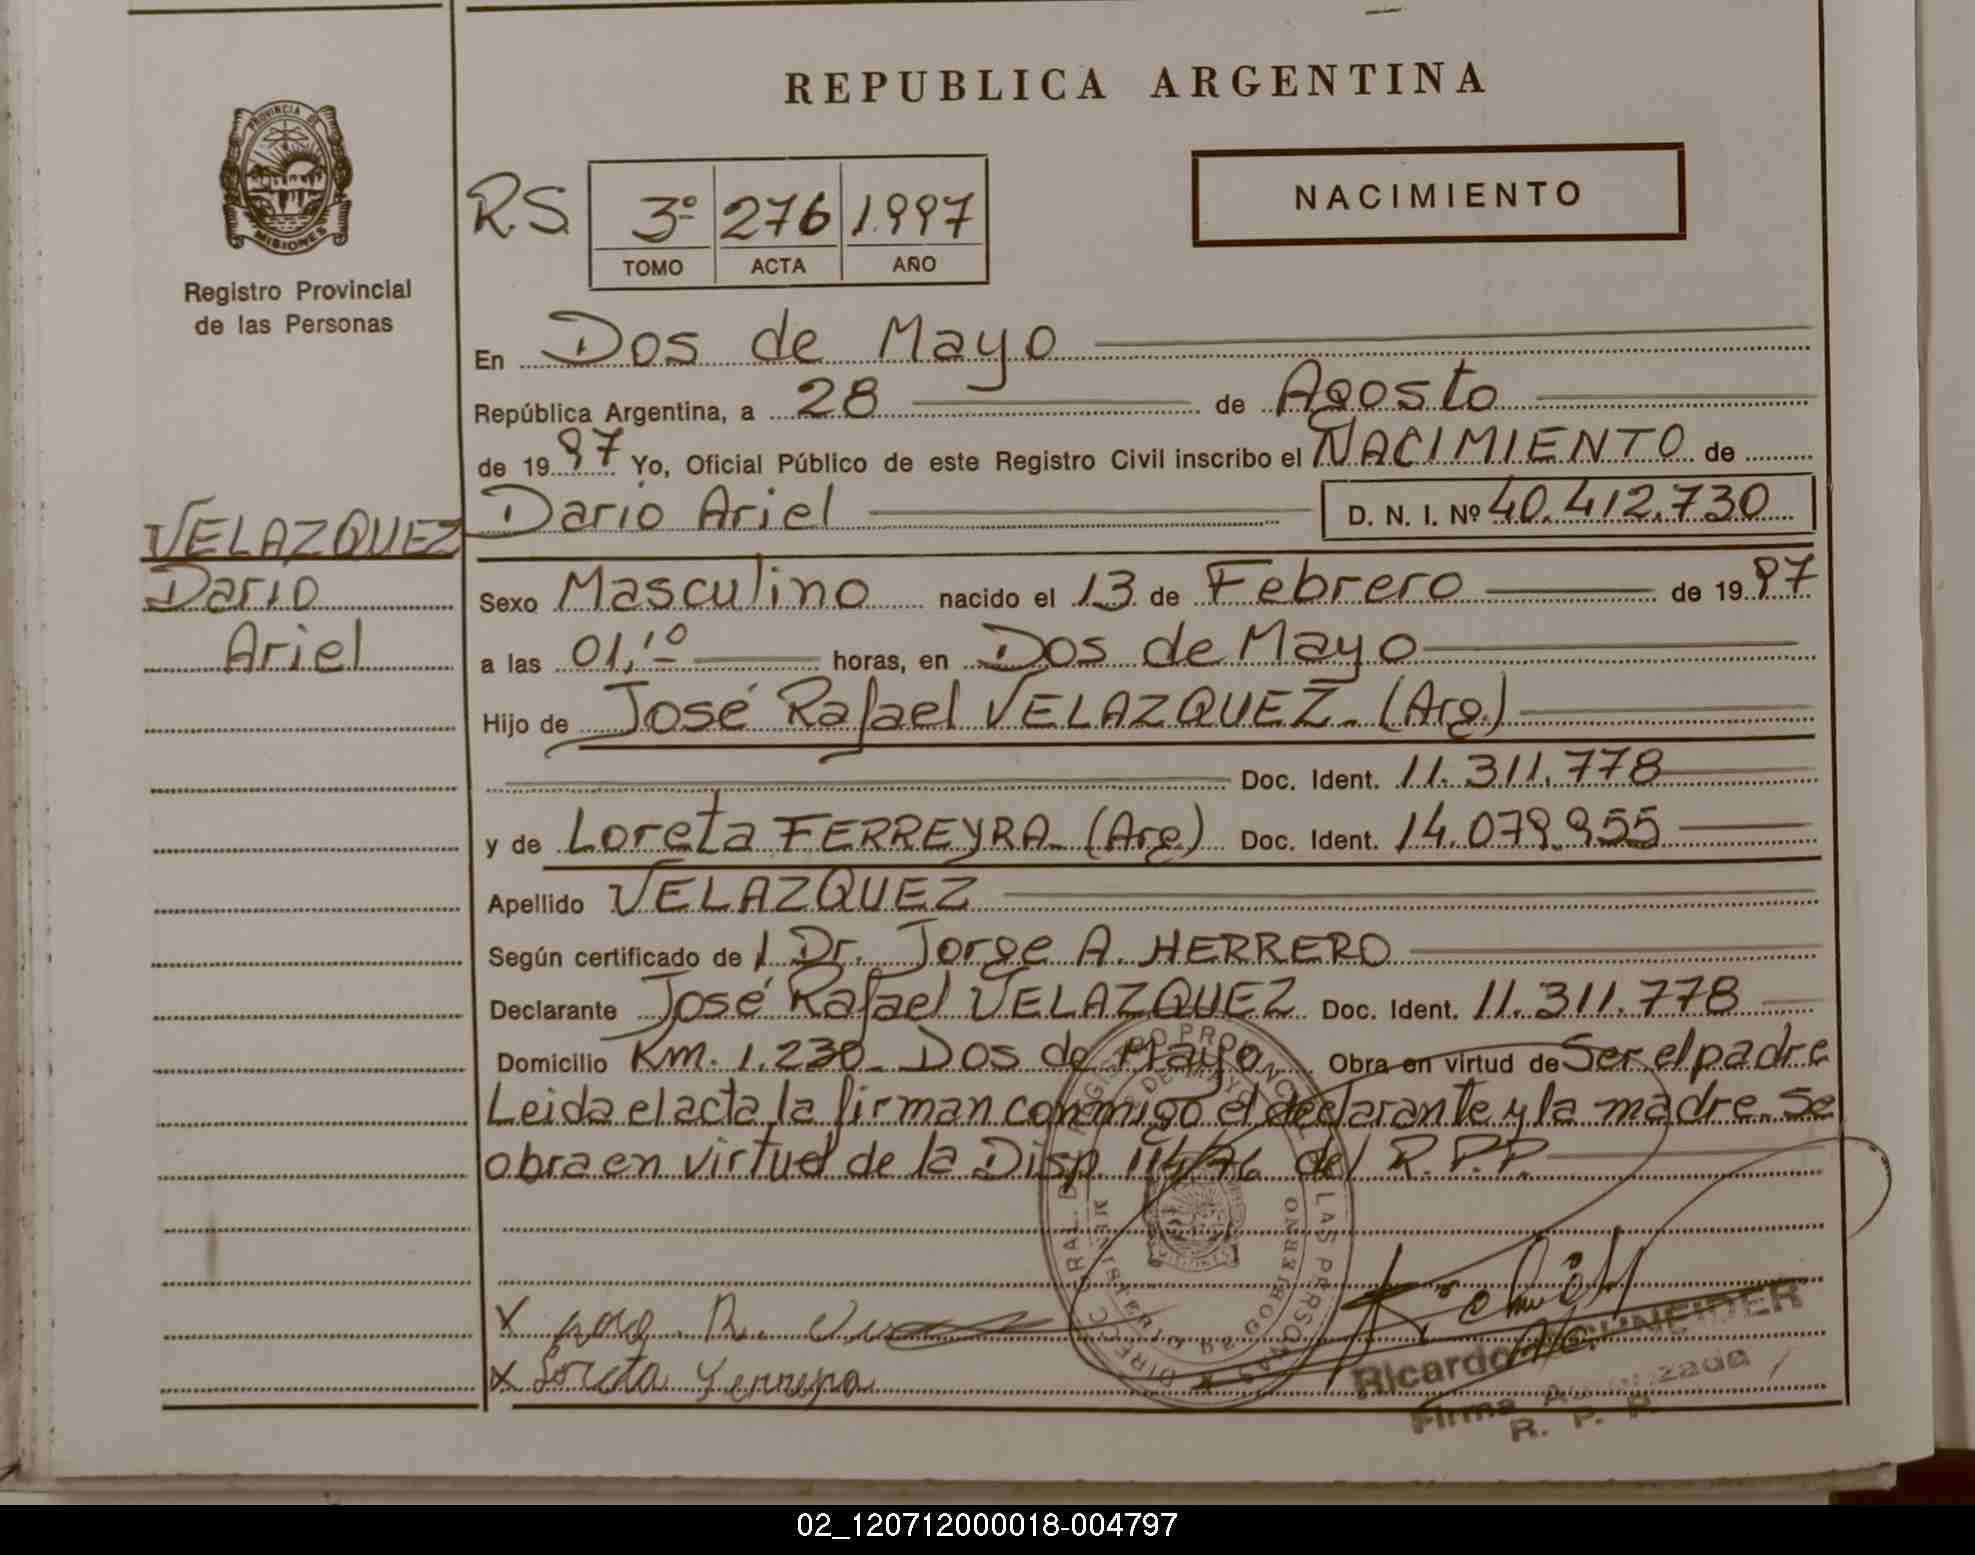 REPUBLICA ARGENTINA
PROVINCIA DE
MISIONES
Registro Provincial
de las Personas
NACIMIENTO
R.S. 3º 276 1.997
TOMO ACTA AÑO
En Dos de Mayo
República Argentina, a 28 de Agosto
de 1997 Yo, Oficial Público de este Registro Civil inscribo el NACIMIENTO de
VELAZQUEZ
Dario
Ariel
Dario Ariel D. N. I. Nº 40.412.730
Sexo Masculino nacido el 13 de Febrero de 1997
a las 01,10 horas, en Dos de Mayo
Hijo de José Rafael VELAZQUEZ. (Arg.)
Doc. Ident. 11.311.778
y de Loreta FERREYRA (Arg.) Doc. Ident. 14.079.955
Apellido VELAZQUEZ
Según certificado de l Dr. Jorge A. HERRERO
Declarante José Rafael VELAZQUEZ Doc. Ident. 11.311.778
Domicilio Km. 1.230 Dos de Mayo Obra en virtud de Ser el padre
Leida el acta, la firman conmigo el declarante y la madre. Se
obra en virtud de la Disp. 114/76 del R.P.P.
x R.
x Loreta Ferreyra
Ricardo SCHNEIDER
Firma Autorizada
R. P. P.
02_120712000018-004797